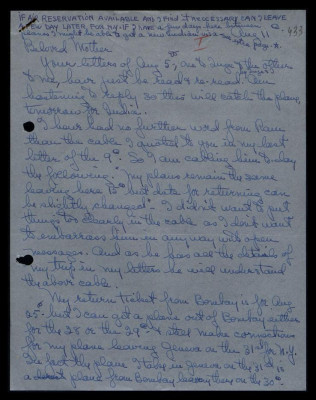 IF AIR RESERVATION AVAILABLE AND I FIND IT NECESSARY CAN I LEAVE
A FEW DAY LATER FOR NY. IF I take a few days here between
433
Aug 11
Beloved Mother
Your letters of Aug 5, one to Inga & the other
to my have just be read & re-read. Am
hastening to reply so this will catch the plane
tomorrow for India.
I have had no further word from Ram
than the cable I quoted to you in my last
letter of the 9th. So I am cabling him to-day
the following: "My plans remain the same
leaving here 15th but date for returning can
be slightly changed". I didn't want to put
things too clearly in the cable as I don't want
to embarrass him in anyway with open
messages. And as he has all the details of
my trip in my letters he will understand
the above cable.
My return ticket from Bombay is for Aug
25th but I can get a plane out of Bombay either
for the 28 or the 29th & still make connections
for my plane leaving Geneva on the 31st for N.Y.
In fact the plane I take in Geneva on the 31st is
a plane from Bombay leaving there on the 30th.